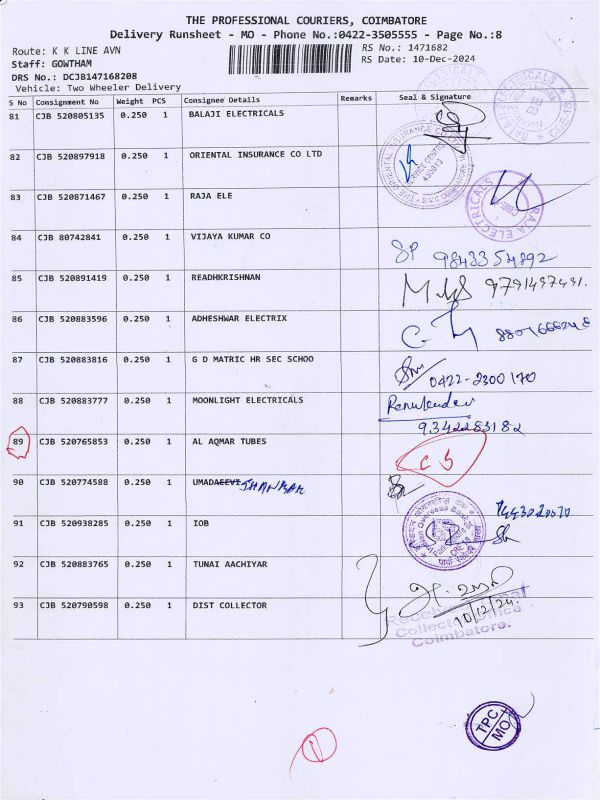 THE PROFESSIONAL COURIERS, COIMBATORE
Delivery Runsheet - MO - Phone No.:0422-3505555 - Page No.:8
Route: K K LINE AVN
RS No.: 1471682
Staff: GOWTHAM
RS Date: 10-Dec-2024
DRS No.: DCJB147168208
Vehicle: Two Wheeler Delivery
S No Consignment No Weight PCS Consignee Details Remarks Seal & Signature
81 CJB 520805135 0.250 1 BALAJI ELECTRICALS
82 CJB 520897918 0.250 1 ORIENTAL INSURANCE CO LTD
83 CJB 520871467 0.250 1 RAJA ELE
RAJA ELECTRICALS
84 CJB 80742841 0.250 1 VIJAYA KUMAR CO
SP 9843354892
85 CJB 520891419 0.250 1 READHKRISHNAN
9791497491.
86 CJB 520883596 0.250 1 ADHESHWAR ELECTRIX
87 CJB 520883816 0.250 1 G D MATRIC HR SEC SCHOO
0422-2300170
88 CJB 520883777 0.250 1 MOONLIGHT ELECTRICALS
9342283182
89 CJB 520765853 0.250 1 AL AQMAR TUBES
CS
90 CJB 520774588 0.250 1 UMADAEEVI SHANKAR
91 CJB 520938285 0.250 1 IOB
92 CJB 520883765 0.250 1 TUNAI AACHIYAR
93 CJB 520790598 0.250 1 DIST COLLECTOR
10/12/24.
Coimbatore.
TPC
MO
1